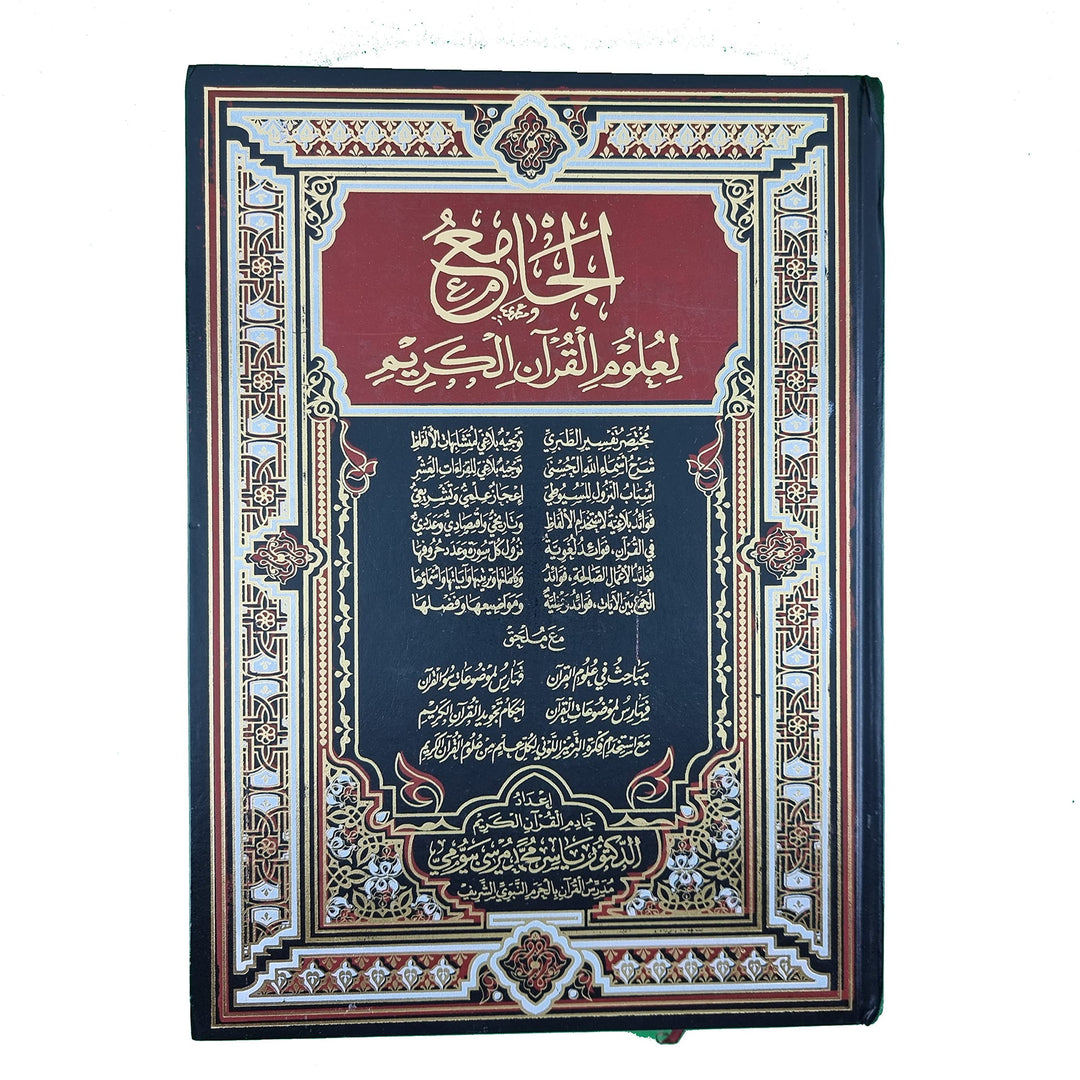 الجامع
لعلوم القرآن الكريم
مختصر تفسير الطبري
شرح أسماء الله الحسنى
أسباب النزول للسيوطي
فوائد بلاغية لاستخدام الألفاظ
في القرآن، فوائد لغوية
فوائد الأعمال الصالحة، فوائد
الجمع بين الآيات، فوائد
توجيه بلاغي لمتشابهات الألفاظ
توجيه بلاغي للقراءات العشر
إعجاز علمي وتشريعي
وتاريخي واقتصادي وعددي
نزول كل سورة وعدد حروفها
وكلماتها وترتيبها وآياتها وأسماؤها
ومواضيعها وفضلها
مع ملحق
مباحث في علوم القرآن
فهارس لموضوعات سور القرآن
فهارس لموضوعات القرآن
أحكام تجويد القرآن الكريم
مع استخدام فكرة الترميز اللوني لكل علم من علوم القرآن الكريم
إعداد
خادم القرآن الكريم
الدكتور ياسر محمد مرسي بيومي
مدرس القرآن بالحرم النبوي الشريف